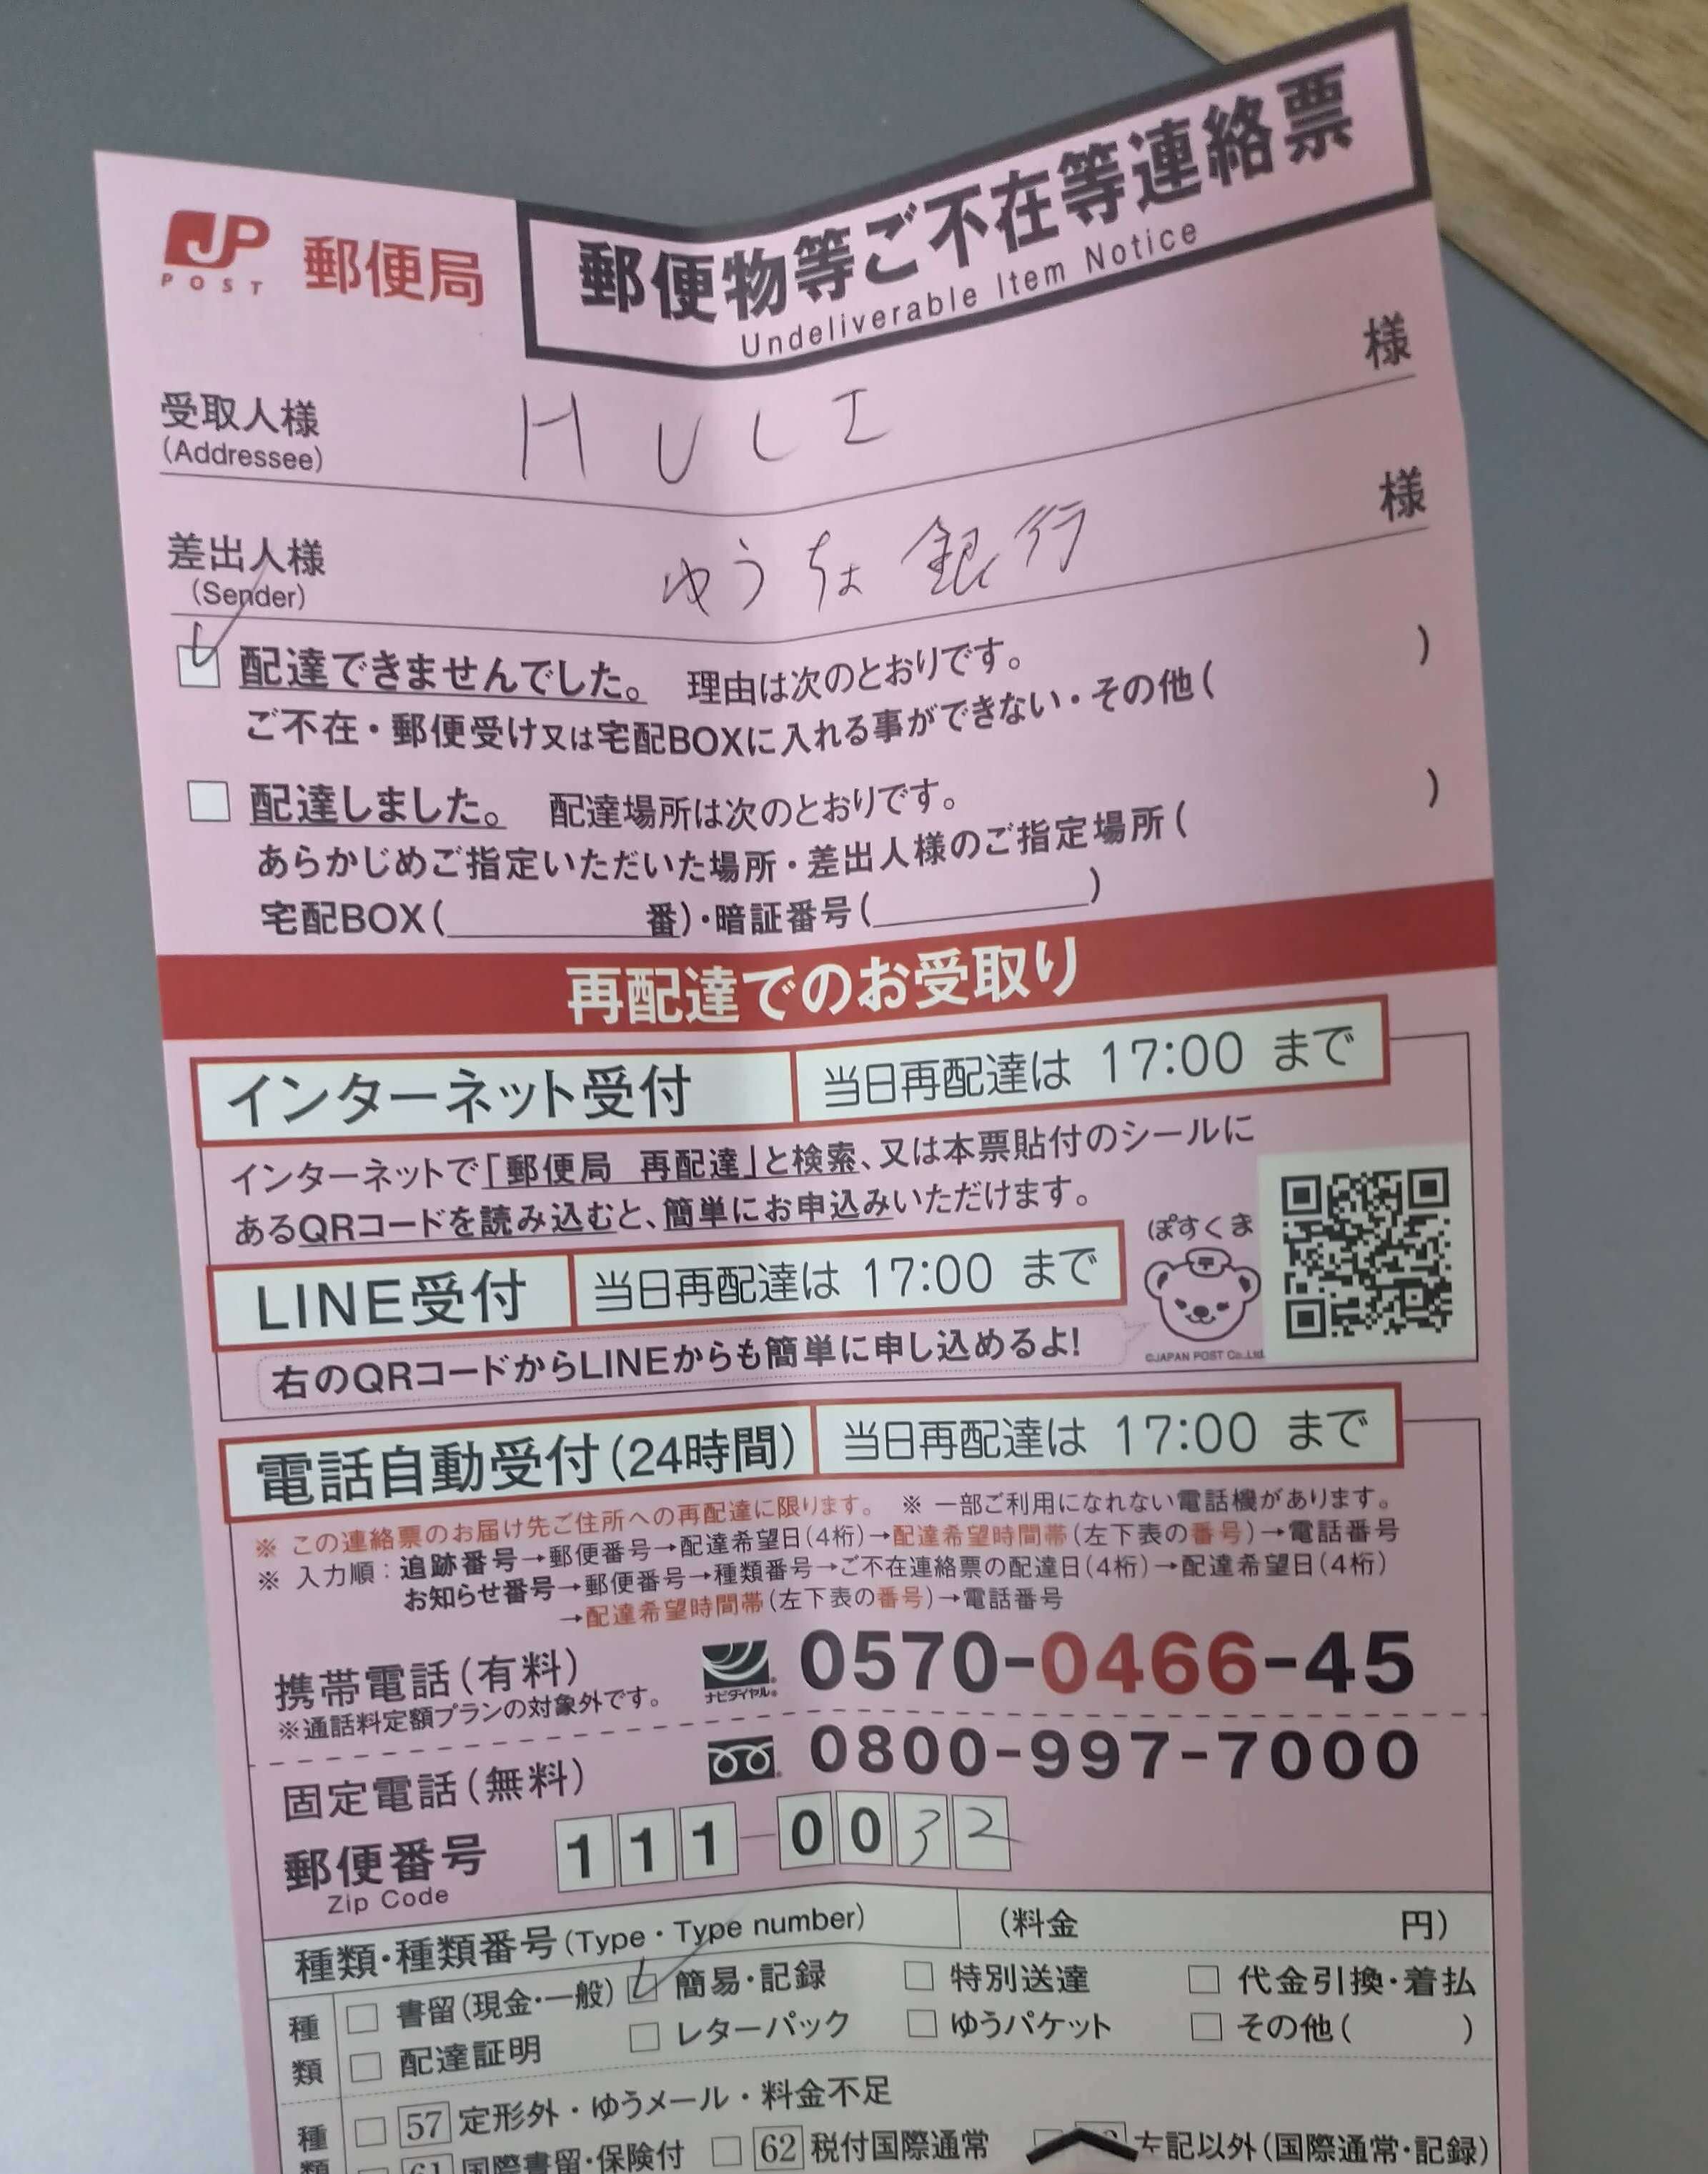 JP
POST
郵便局
郵便物等ご不在等連絡票
Undeliverable Item Notice
受取人様
(Addressee)
HULI 様
差出人様
(Sender)
ゆうちょ銀行 様
配達できませんでした。 理由は次のとおりです。
ご不在・郵便受け又は宅配BOXに入れる事ができない・その他( )
配達しました。 配達場所は次のとおりです。
あらかじめご指定いただいた場所・差出人様のご指定場所( )
宅配BOX( 番)・暗証番号( )
再配達でのお受取り
インターネット受付 当日再配達は 17:00 まで
インターネットで「郵便局 再配達」と検索、又は本票貼付のシールに
あるQRコードを読み込むと、簡単にお申込みいただけます。
ぽすくま
LINE受付 当日再配達は 17:00 まで
右のQRコードからLINEからも簡単に申し込めるよ!
©JAPAN POST Co.,Ltd.
電話自動受付(24時間) 当日再配達は 17:00 まで
※ この連絡票のお届け先ご住所への再配達に限ります。 ※ 一部ご利用になれない電話機があります。
※ 入力順:追跡番号→郵便番号→配達希望日(4桁)→配達希望時間帯(左下表の番号)→電話番号
お知らせ番号→郵便番号→種類番号→ご不在連絡票の配達日(4桁)→配達希望日(4桁)
→配達希望時間帯(左下表の番号)→電話番号
携帯電話(有料) ナビダイヤル 0570-0466-45
※通話料定額プランの対象外です。
固定電話(無料) 0800-997-7000
郵便番号 111-0032
Zip Code
種類・種類番号(Type・Type number) (料金 円)
種類
書留(現金・一般) 簡易・記録 特別送達 代金引換・着払
配達証明 レターパック ゆうパケット その他( )
種類
57 定形外・ゆうメール・料金不足
61 国際書留・保険付 62 税付国際通常 左記以外(国際通常・記録)